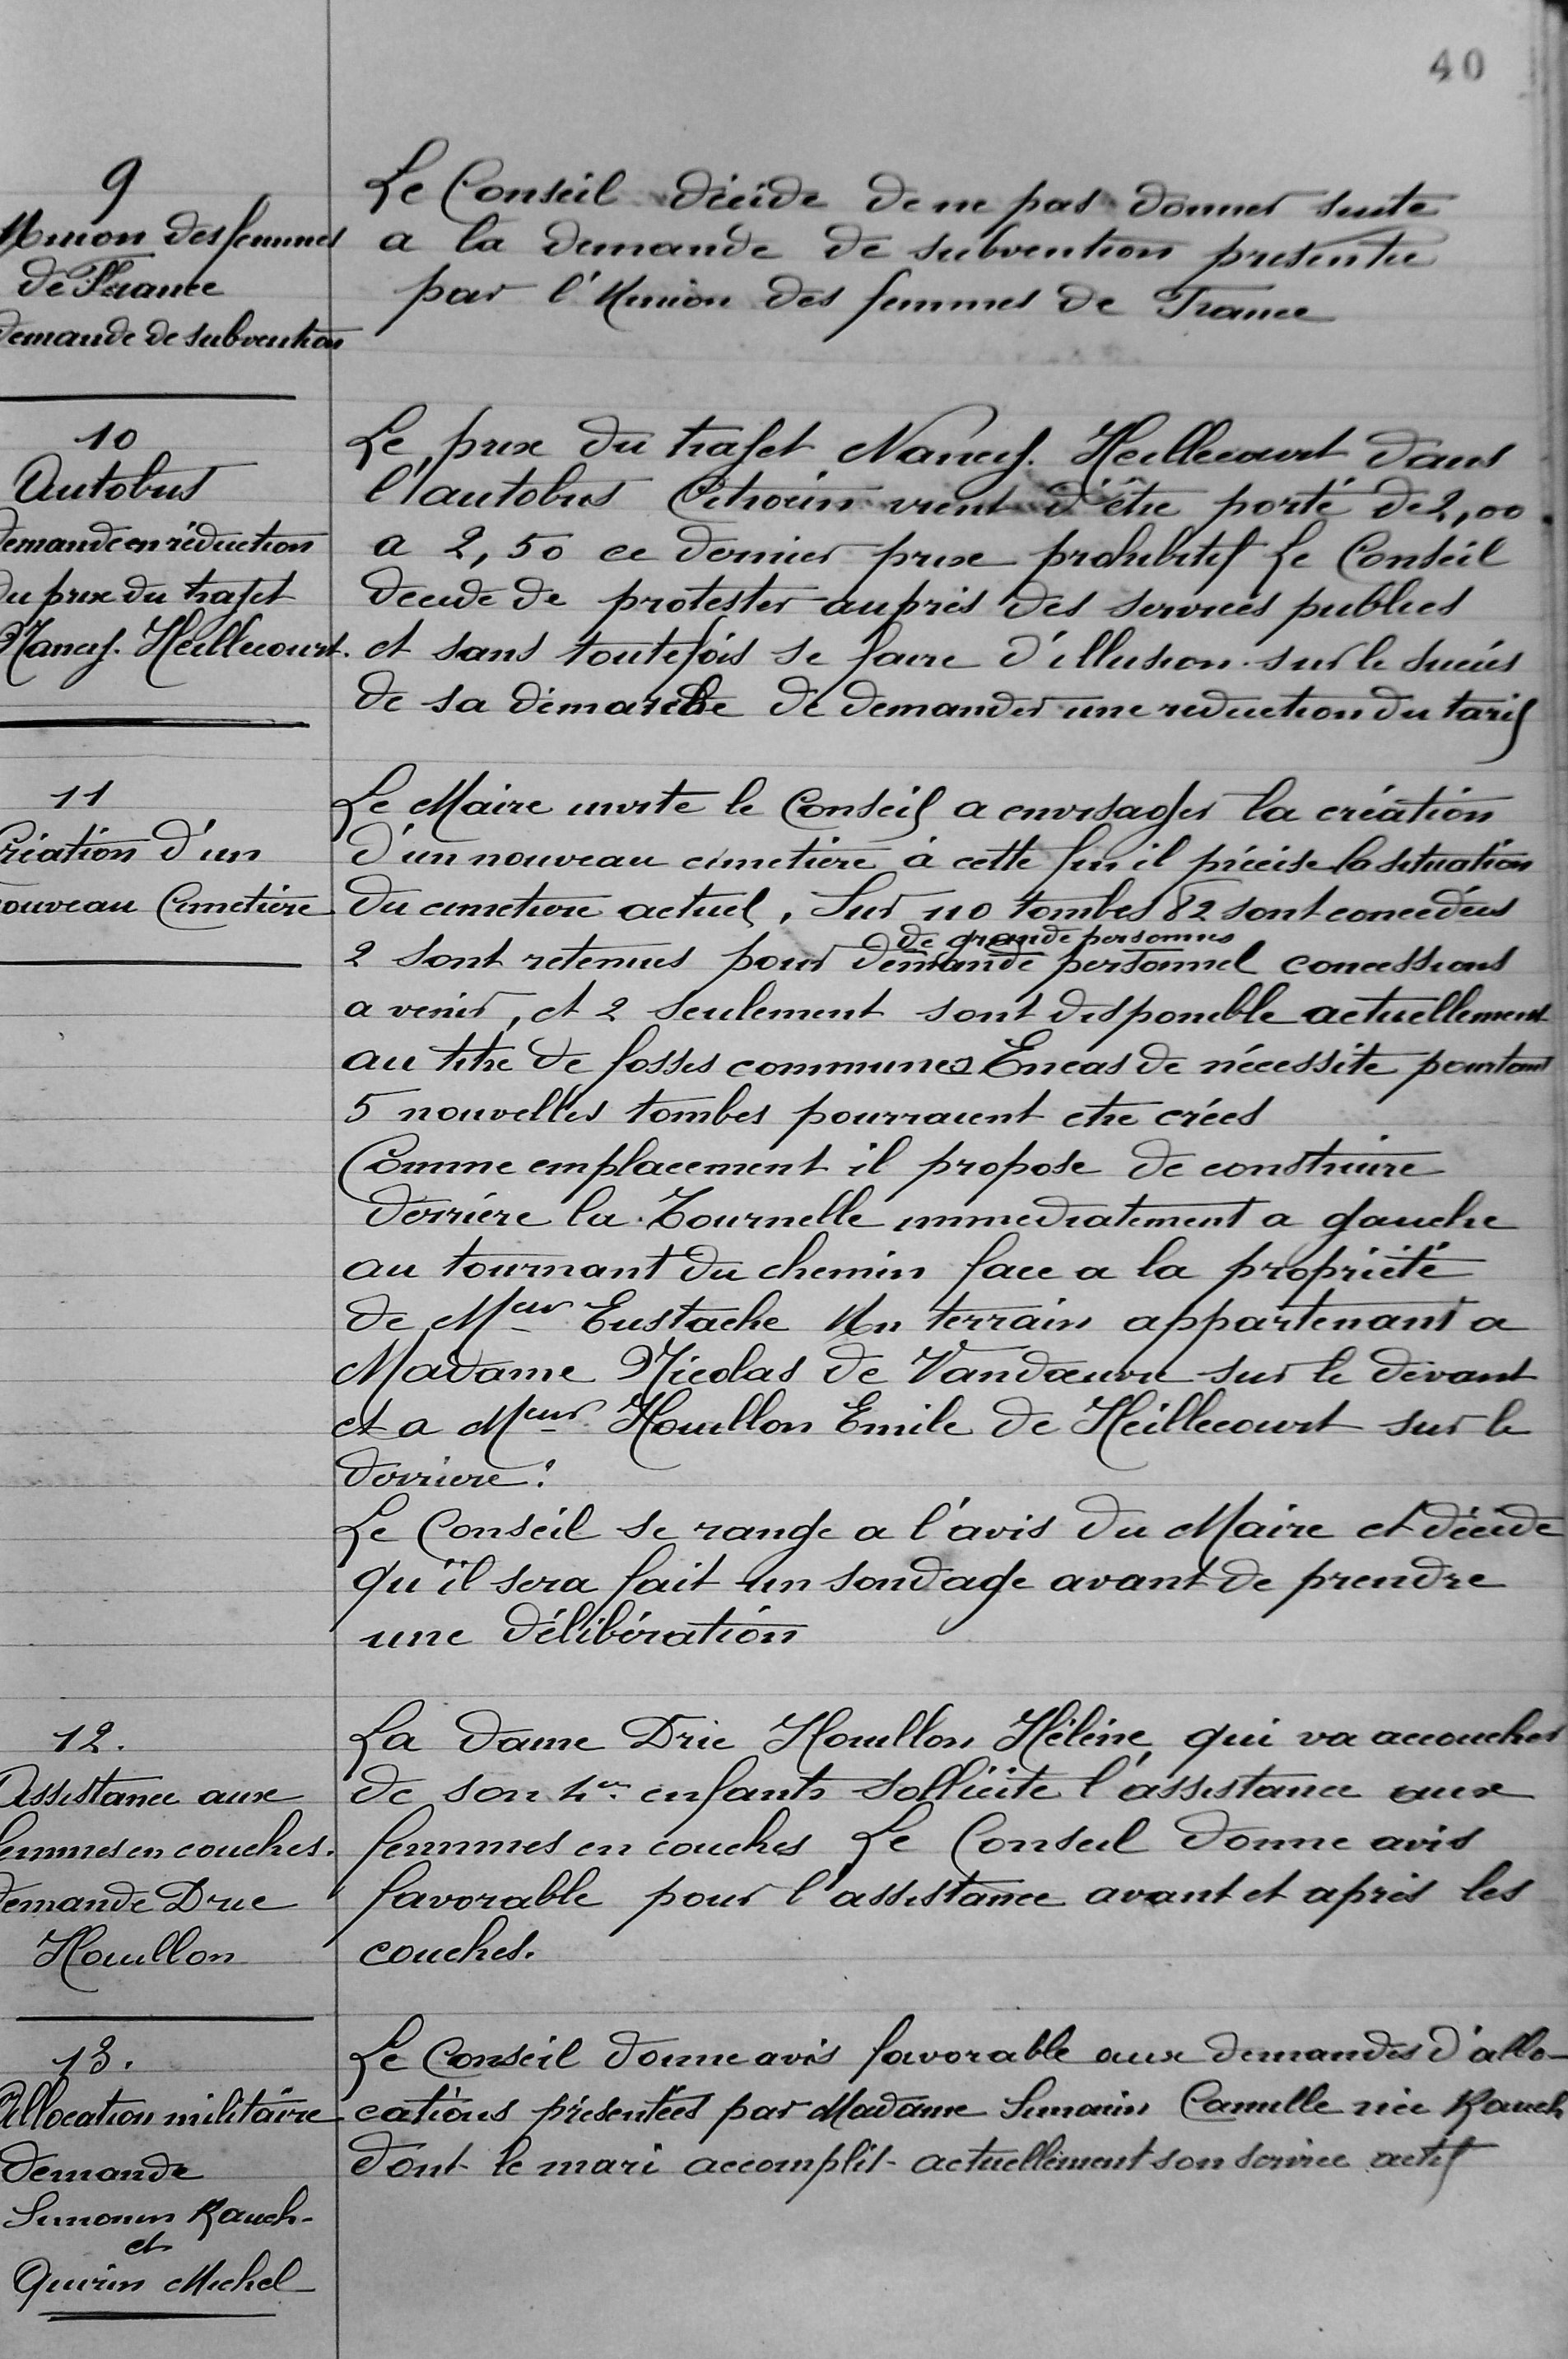 40
9
Union des femmes
de France
demande de subvention
Le Conseil décide de ne pas donner suite
a la demande de subvention presentée
par l'Union des femmes de France
10
Autobus
demande en réduction
du prix du trajet
Nancy. Heillecourt.
Le prix du trajet Nancy. Heillecourt dans
l'autobus Citroën vient d'être porté de 2,00
a 2,50 ce dernier prix prohibitif Le Conseil
decide de protester auprès des services publics
et sans toutefois se faire d'illusion sur le succès
de sa démarche de demander une reduction du tarif
11
Création d'un
nouveau Cimetière
Le Maire invite le Conseil a envisager la création
d'un nouveau cimetière à cette fin il précise la situation
du cimetiere actuel, Sur 110 tombes 82 sont concedées
de grande personnes
2 sont retenues pour demande personnel concessions
a venir, et 2 seulement sont disponible actuellement
au titre de fosses communes En cas de nécessite pourtant
5 nouvelles tombes pourraient etre crées
Comme emplacement il propose de construire
derrière la Tournelle immediatement a gauche
au tournant du chemin face a la propriété
de Meur Eustache Un terrain appartenant a
Madame Nicolas de Vandœuvre sur le devant
et a Meur Houillon Emile de Heillecourt sur le
derriere.
Le Conseil se range a l'avis du Maire et décide
qu'il sera fait un sondage avant de prendre
une délibération
12.
Assistance aux
femmes en couches.
demande Drie
Houillon
La dame Drie Houillon Hélène qui va accoucher
de son enfants sollicite l'assistance aux
femmes en couches Le Conseil donne avis
favorable pour l'assistance avant et après les
couches.
13.
Allocation militaire
demande
Simonin Rauch-
et
Quirin Michel
Le Conseil donne avis favorable aux demandes d'allo-
cations présentées par Madame Simonin Camille née Rauch
dont le mari accomplit actuellement son service actif